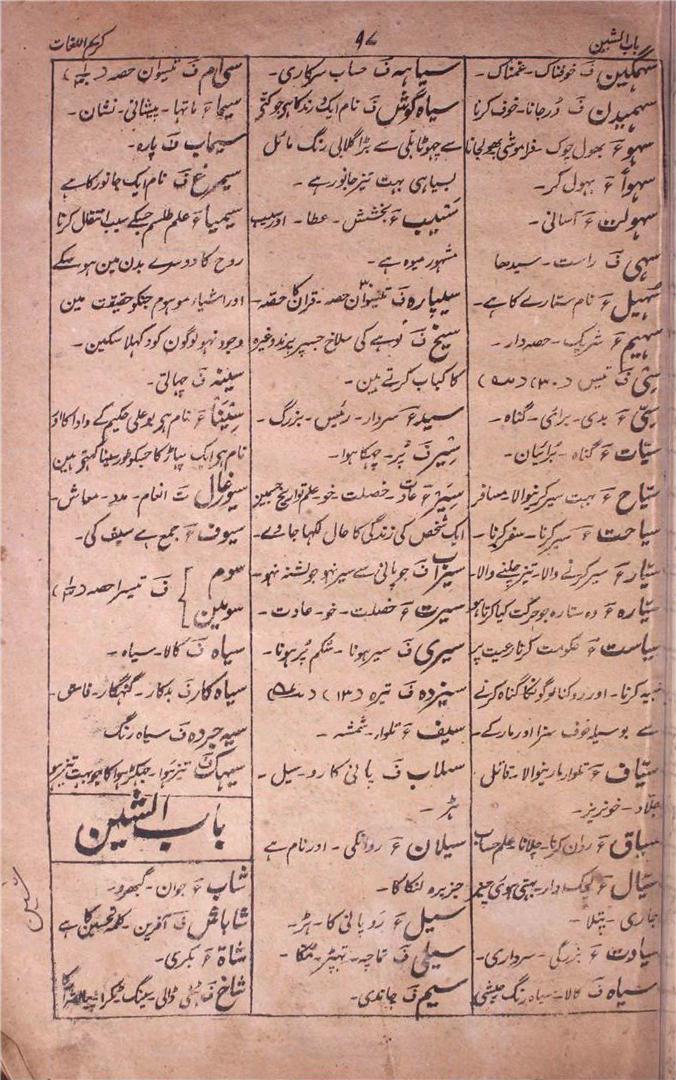 باب الشین
۹۷
کریم اللغات
سہمگین ف خوفناک ۔ غمناک ۔
سہمیدن ف ڈرجانا ۔ خوف کرنا
سہو ع بھول چوک ۔ فراموشی بھولجانا
سہواً ع بہول کر ۔
سہولت ع آسانی ۔
سہی ف راست ۔ سیدھا
سہیل ع نام ستارے کا ہے ۔
سہیم ع شریک ۔ حصہ دار ۔
سی ف تیس (۳۰)
سیّی ع بدی ۔ برائی ۔ گناہ ۔
سیّات ع گناہ ۔ برائیان ۔
سیّاح ع بہت سیر کرنیوالا ۔ مسافر
سیاحت ع سیر کرنا ۔ سفر کرنا ۔
سیّار ع سیر کرنے والا ۔ تیز چلنے والا ۔
سیّارہ ع وہ ستارہ جو حرکت کیا کرتا ہو
سیاست ع حکومت کرنا رعیت پر
تنبیہ کرنا ۔ اور روکنا لوگونکا گناہ کرنے
سے بوسیلہ خوف سزا اور مار کے ۔
سیّاف ع تلوار مارنیوالا ۔ قاتل
جلّاد ۔ خونریز ۔
سیاق ع روان کرنا ۔ چلانا علم حساب
سیّال ع دار ۔ بہتی ہوئی چیز
جاری ۔ پتلا ۔
سیادت ع بزرگی ۔ سرداری ۔
سیاہ ف کالا ۔ سیاہ رنگ حبشی
سیاہہ ف حساب سرکاری ۔
سیاہ گوش ف نام ایک درندکا ہو جو کتّے
سے چہوٹا بلی سے بڑا گلابی رنگ مائل
بسیاہی بہت تیز جانور ہے ۔
سَیب ع بخشش ۔ عطا ۔ اور سیب
مشہور میوہ ہے ۔
سیپارہ ف تیسوان حصہ ۔ قرآن کا حصّہ ۔
سیخ ف لوہے کی سلاخ جسپر پرند وغیرہ
کا کباب کرتے ہین ۔
سید ع سردار ۔ رئیس ۔ بزرگ ۔
سیر ف پُر ۔ چھکا ہوا ۔
سیر ع عادت ۔ خصلت ۔ خو علم تواریخ جسمین
ایک شخص کی زندگی کا حال لکہا جاوے ۔
سیراب ف جو پانی سے سیر ہو جو تشنہ نہو ۔
سیرت ع خصلت ۔ خو ۔ عادت ۔
سیری ف سیر ہونا ۔ شکم پُر ہونا ۔
سیزدہ ف تیرہ (۱۳)
سیف ع تلوار ۔ شمشہ ۔
سیلاب ف پانی کا رو ۔ سیل ۔
ہڑ ۔
سیلان ع روانگی ۔ اور نام ہے
جزیرہ لنکا کا ۔
سیل ع رو پانی کا ۔ ہڑ ۔
سیلی ف تماچہ ۔ تھپڑ ۔ مُکّا ۔
سیم ف چاندی ۔
سی ام ف تیسوان حصہ
سیما ع ماتہا ۔ پیشانی ۔ نشان ۔
سیماب ف پارہ ۔
سیمرغ ف نام ایک جانور کا ہے
سیمیا ع علم طلسم جسکے سبب انتقال کرنا
روح کا دوسرے بدن مین ہوسکے
اور اشیاء موہوم جنکو حقیقت مین
وجود نہو لوگون کو دکہلا سکین ۔
سینہ ف چہاتی ۔
سینا ع نام ہو بوعلی حکیم کے دادا کا اور
نام ہو ایک پہاڑ کا جسکو طور سینا کہتے ہین
سیورغال ت انعام ۔ مدد ۔ معاش ۔
سیوف ع جمع ہے سیف کی ۔
سیوم
سویمین
ف تیسرا حصہ
سیاہ ف کالا ۔ سیاہ ۔
سیاہ کار ف بدکار ۔ گنہگار ۔ فاسق ۔
سیہ چردہ ف سیاہ رنگ
سیہک تیز ہوا ۔ جہکڑ ہوا کا جو بہت تیز ہو
باب الشین
شاب ع جوان ۔ گبھرو ۔
شاباش ف آفرین ۔ کلمہ تحسین کا ہے
شاۃ ع بکری ۔
شاخ ف ٹہنی ڈالی سینگ ٹکڑا